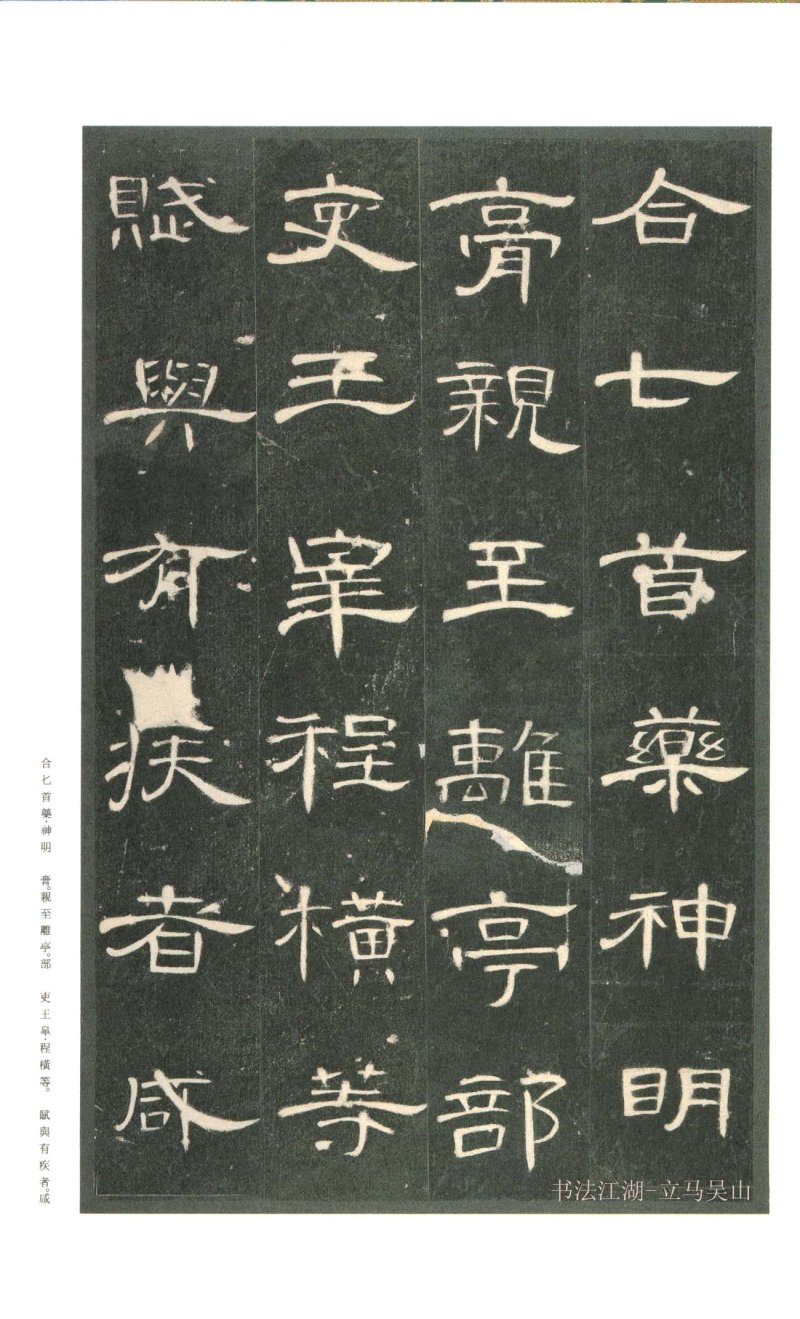 合七首藥神明
膏親至離亭部
吏王皐程橫等
賦與有疾者咸
合七首藥·神明　膏。親至離亭。部　吏王皐·程橫等。　賦與有疾者。咸
书法江湖-立马吴山